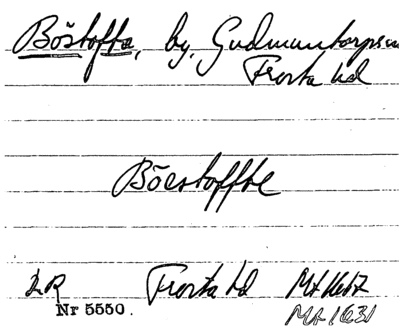 Böstofta, by, Gudmuntorps sn
Frosta hd
Böestoffte
LR Frosta hd Mt 1612
Nr 5550.
Mt 1631